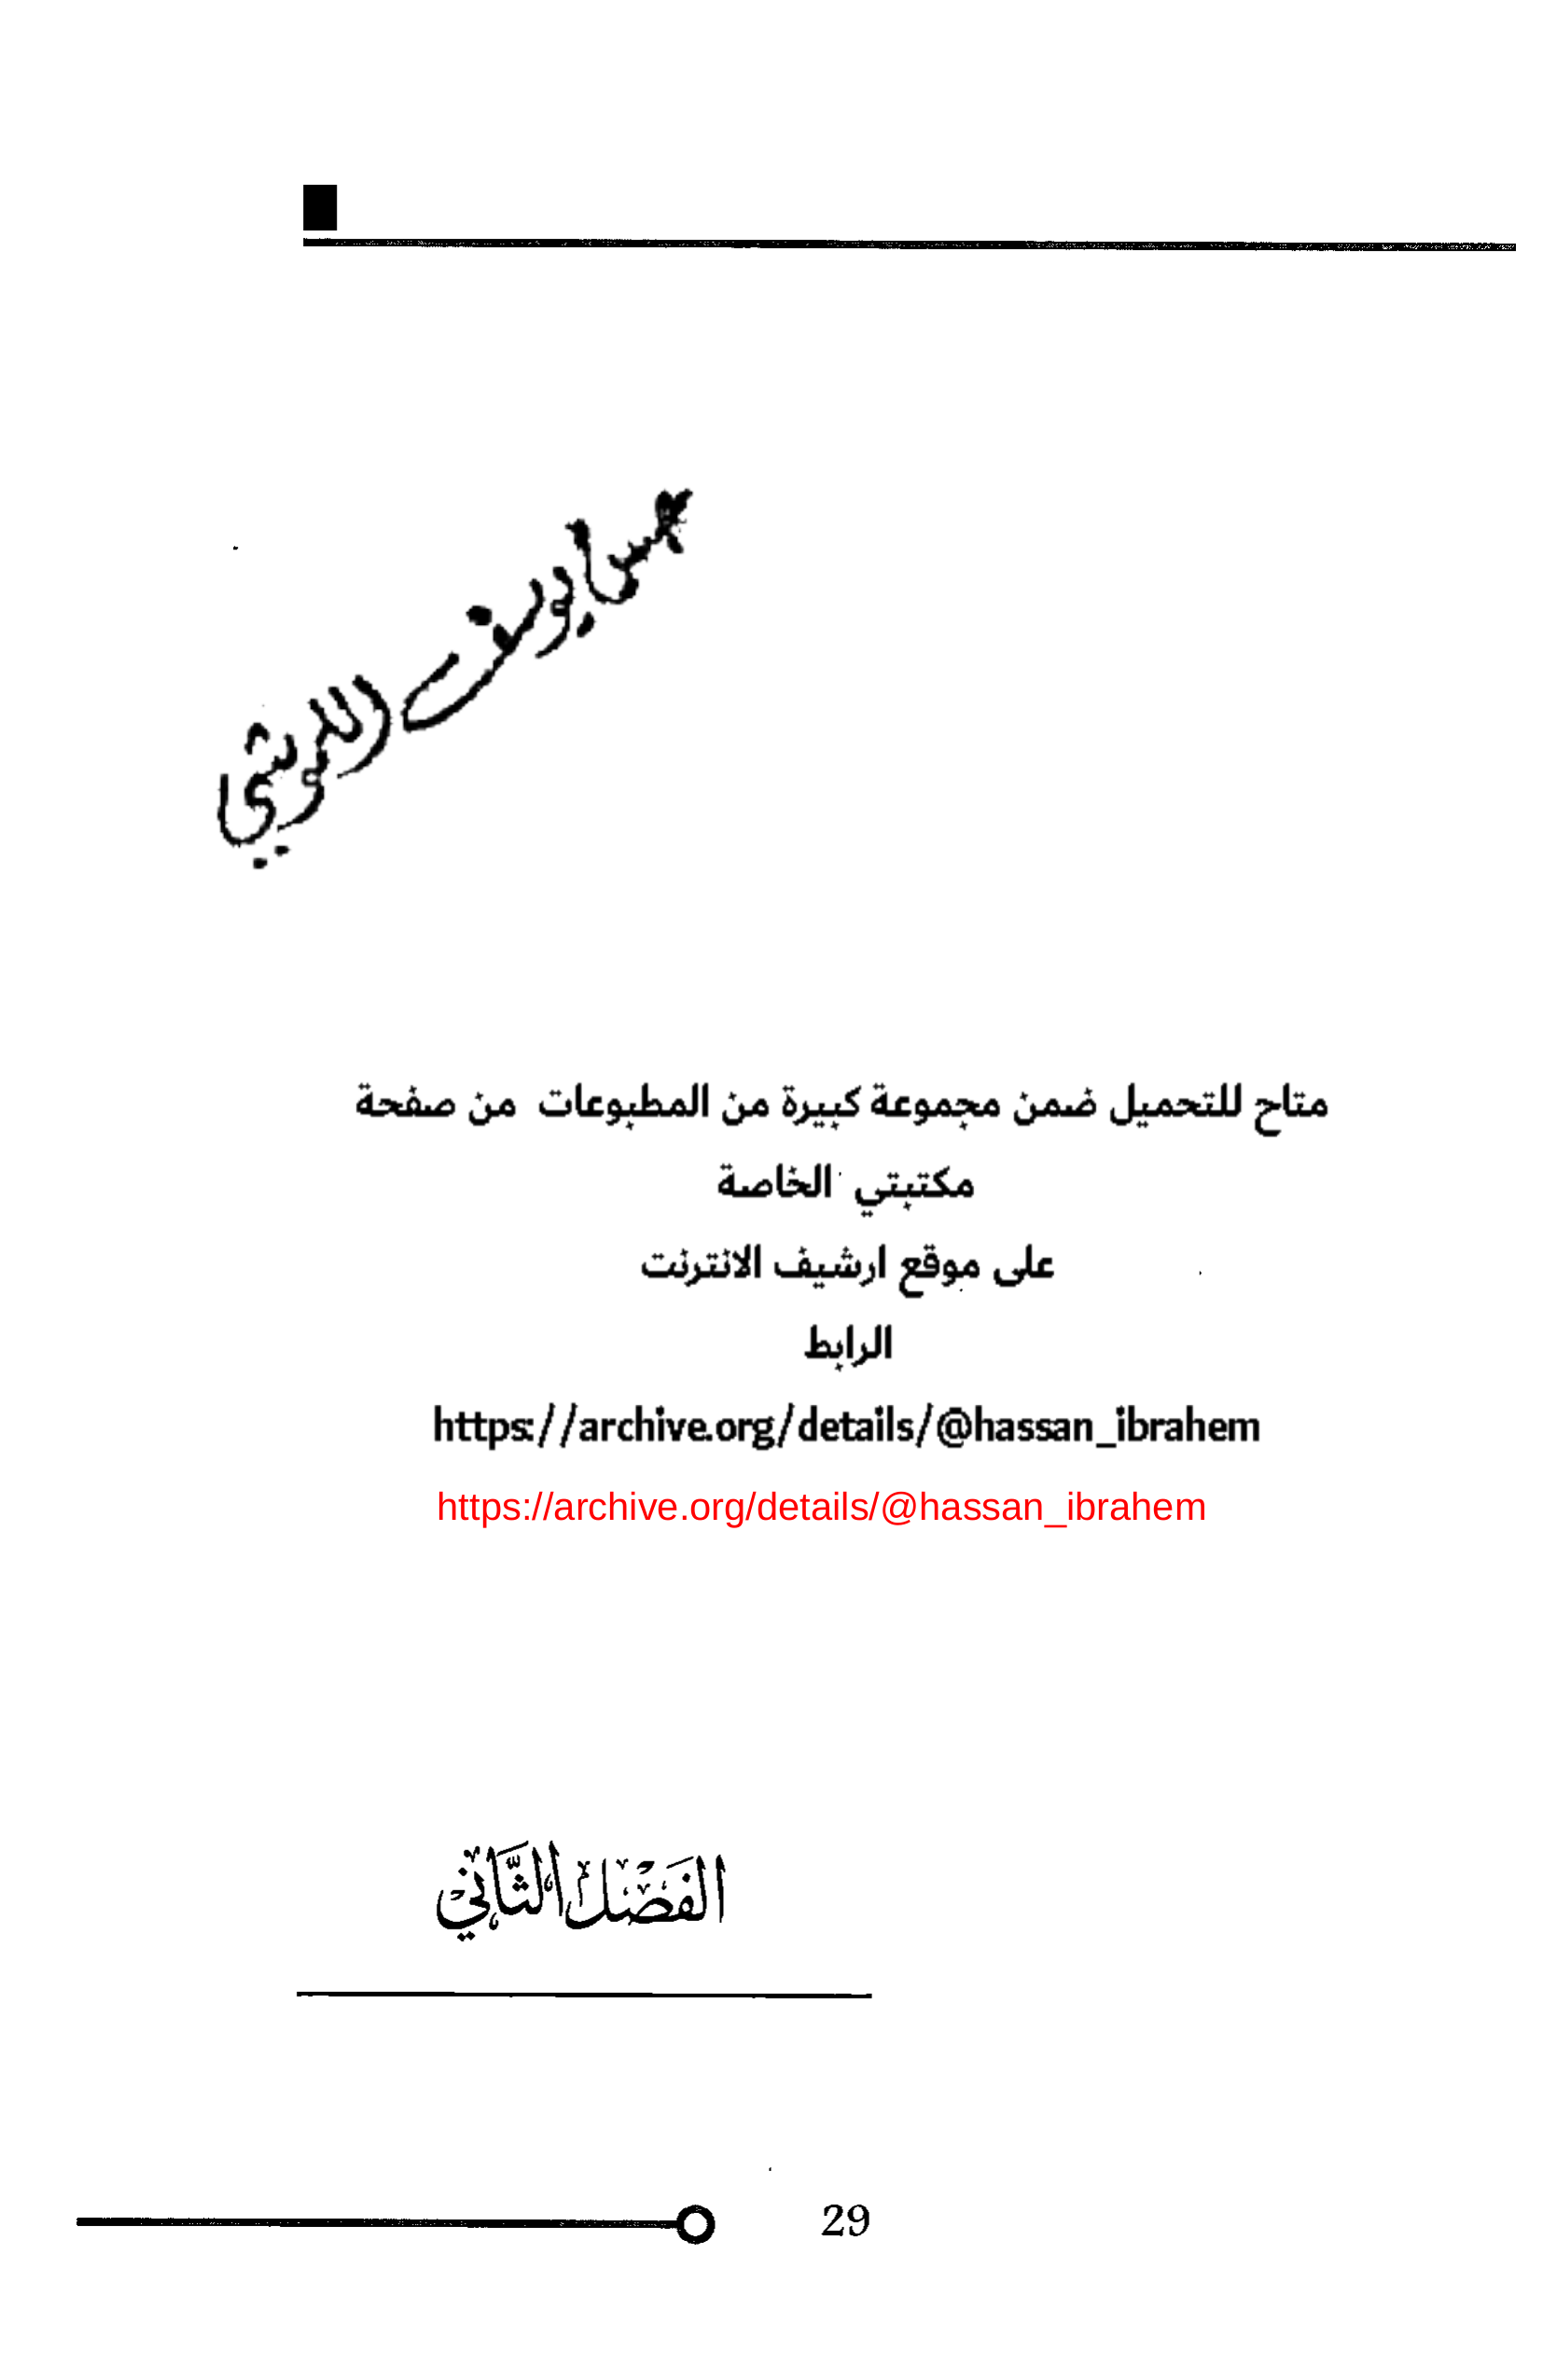 يوسف
متاح للتحميل ضمن مجموعة كبيرة من المطبوعات من صفحة
مكتبتي الخاصة
على موقع ارشيف الانترنت
الرابط
https://archive.org/details/@hassan_ibrahem
https://archive.org/details/@hassan_ibrahem
الفَصْلُ الثَّانِي
29